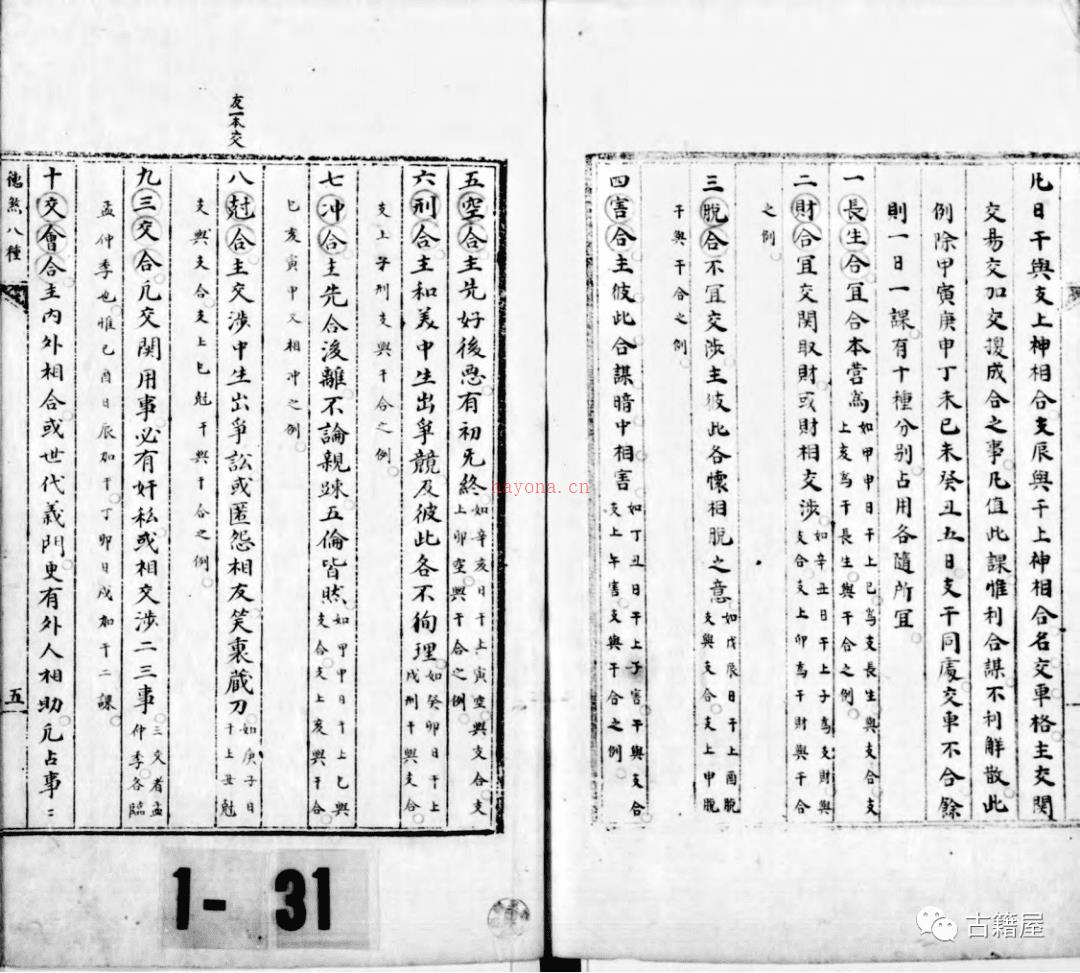 凡日干與支上神相合支辰與干上神相合名交車格主交関
交易交加交接成合之事凡值此課惟利合謀不利觧散此
例除甲寅庚申丁未己未癸丑五日支干同處交車不合餘
則一日一課有十種分别占用各隨所宜
一長生合宜合本营爲如甲申日干上巳爲支長生與支合支上亥爲干長生與干合之例
二財合宜交関取財或財相交涉如辛丑日干上子爲支財與支合支上卯爲干財與干合
之例
三脫合不宜交涉主彼此各懷相脫之意如戊辰日干上酉脫支與支合支上申脫
干與干合之例
四害合主彼此合謀暗中相害如丁丑日干上子害干與支合支上午害支與干合之例
五空合主先好後惡有初无終如辛亥日干上寅空與支合支上卯空與干合之例
六刑合主和美中生出爭競及彼此各不徇理如癸卯日干上戌刑干與支合
支上子刑支與干合之例
七冲合主先合後離不論親踈五倫皆然如甲申日干上巳與支合支上亥與干合
巳亥寅申又相冲之例
友一本交
八尅合主交涉中生出爭訟或匿怨相友笑裏藏刀如庚子日干上丑尅
支與支合支上巳尅干與干合之例
九三交合凡交関用事必有奸私或相交涉二三事三交者孟仲季各臨
孟仲季也惟己酉日辰加干丁卯日戌加干二課
十交會合主内外相合或世代義門更有外人相助凡占事二
德煞八種
五
1-31
nayona.cn
古籍屋